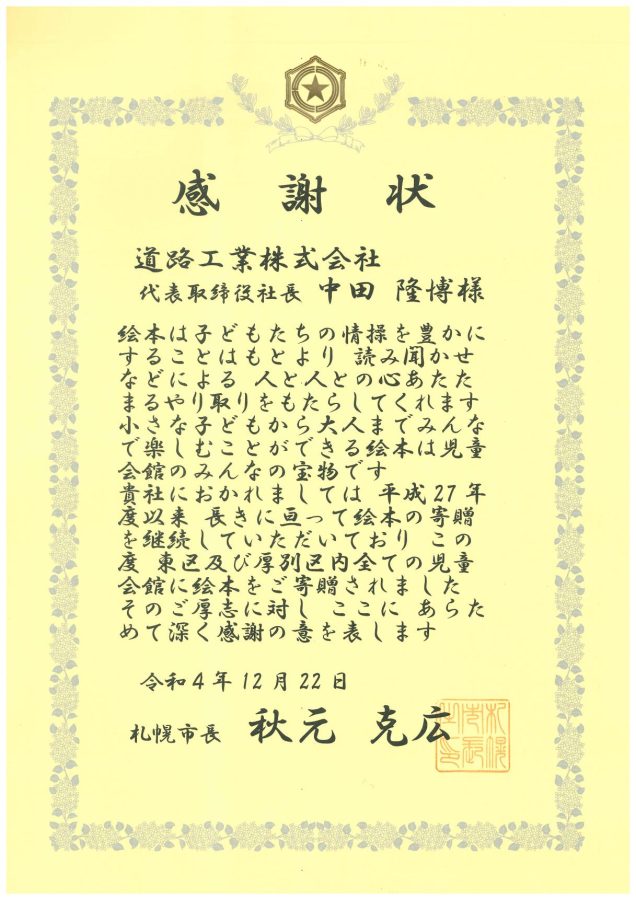 感謝状
道路工業株式会社
代表取締役社長 中田 隆博様
絵本は子どもたちの情操を豊かに
することはもとより 読み聞かせ
などによる 人と人との心あたた
まるやり取りをもたらしてくれます
小さな子どもから大人までみんな
で楽しむことができる絵本は児童
会館のみんなの宝物です
貴社におかれましては 平成27年
度以来 長きに亘って絵本の寄贈
を継続していただいており この
度 東区及び厚別区内全ての児童
会館に絵本をご寄贈されました
そのご厚志に対し ここに あらた
めて深く感謝の意を表します
令和4年12月22日
札幌市長 秋元 克広